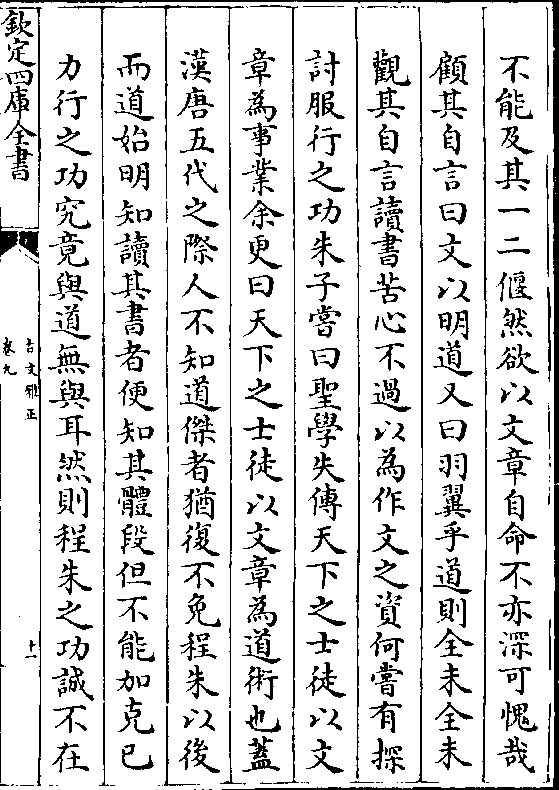 不能及其一二偃然欲以文章自命不亦深可愧哉
顧其自言曰文以明道又曰羽翼乎道則全未全未
觀其自言讀書苦心不過以為作文之資何嘗有探
討服行之功朱子嘗曰聖學失傳天下之士徒以文
章為事業余更曰天下之士徒以文章為道術也蓋
漢唐五代之際人不知道傑者猶復不免程朱以後
而道始明知讀其書者便知其體段但不能加克已
力行之功究竟與道無與耳然則程朱之功誠不在
欽定四庫全書
古文雅正
卷九
十一